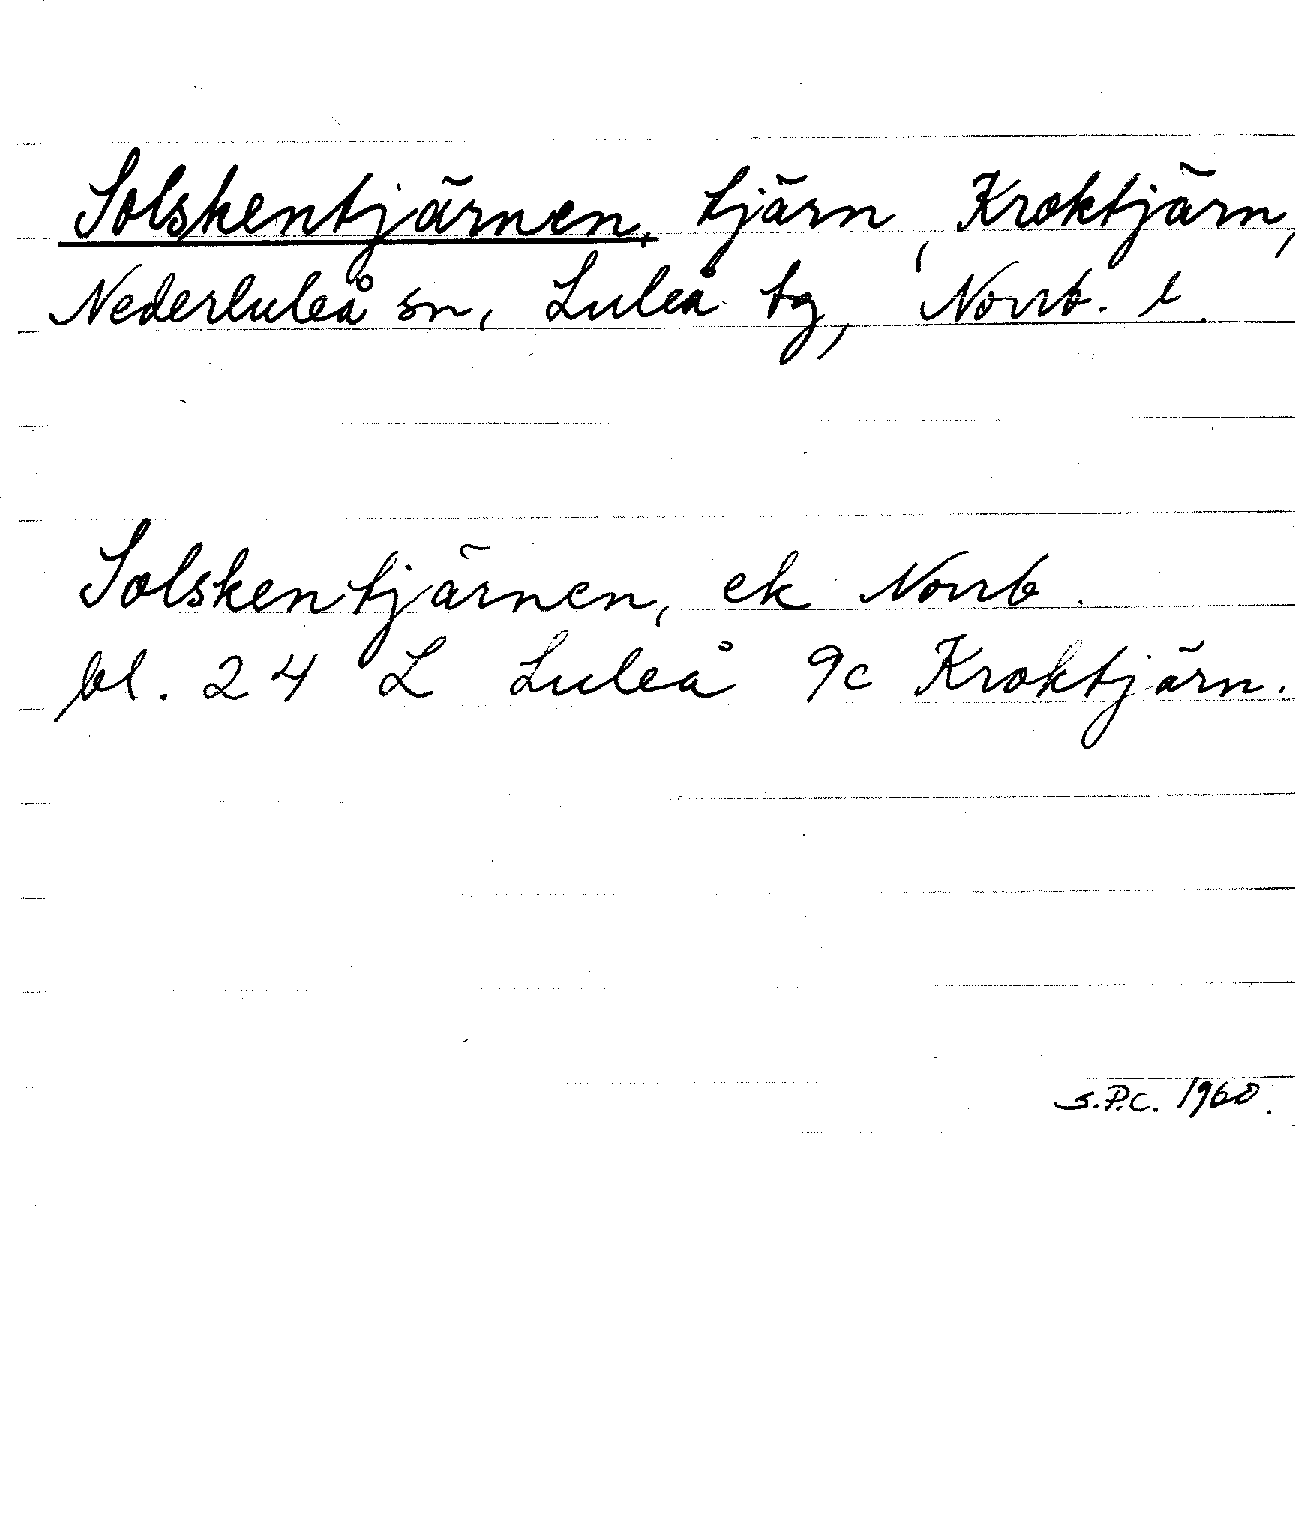 Solskentjärnen, tjärn, Kroktjärn,
Nederluleå sn, Luleå tg, Norrb. l.
Solskentjärnen, ek Norrb.
bl. 24 L Luleå 9c Kroktjärn.
S.P.C. 1960.